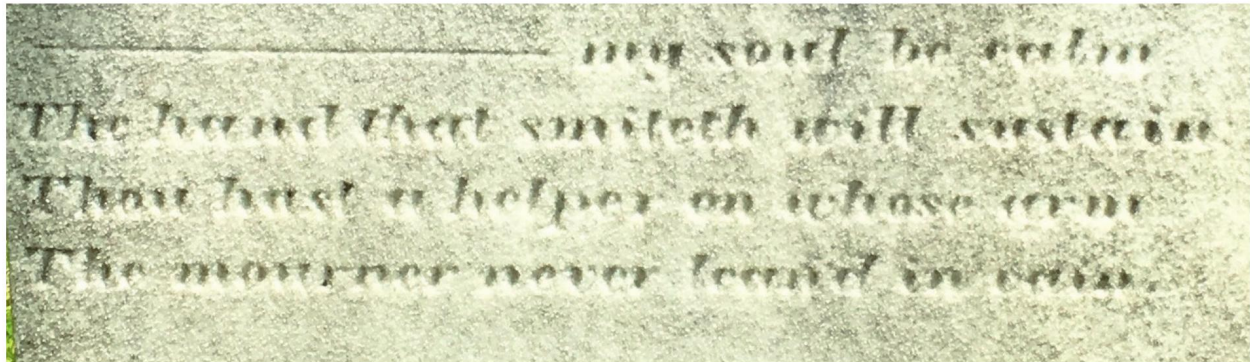 my soul be calm
The hand that smiteth will sustain
Thou hast a helper on whose arm
The mourner never lean'd in vain.